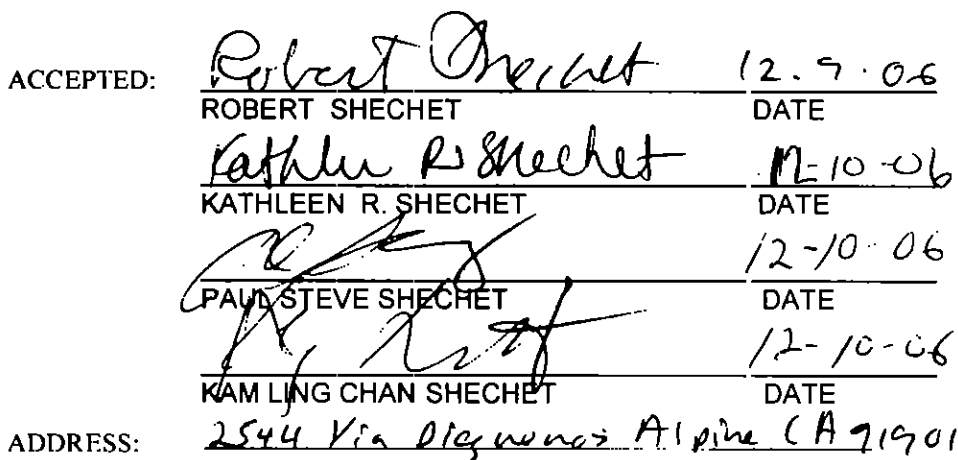 ACCEPTED: Robert Shechet 12.9.06
ROBERT SHECHET DATE
Kathleen R Shechet 12-10-06
KATHLEEN R. SHECHET DATE
12-10-06
PAUL STEVE SHECHET DATE
12-10-06
KAM LING CHAN SHECHET DATE
ADDRESS: 2544 Via Alpine CA 91901